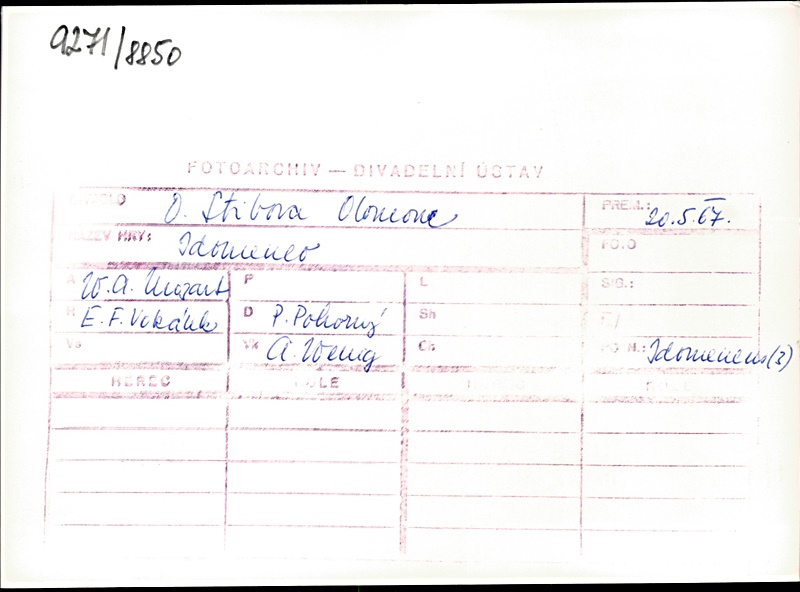 9271/8850
FOTOARCHIV — DIVADELNÍ ÚSTAV
DIVADLO O. Stibora Olomouc PREM.: 20.5.67.
NÁZEV HRY: Idomeneo FOTO
A W. A. Mozart P L SIG.:
H E. F. Vokálek D P. Pokorný Sh
Vs Vk A. Wenig Ch PO N.: Idomeneus (3)
HEREC ROLE HEREC ROLE